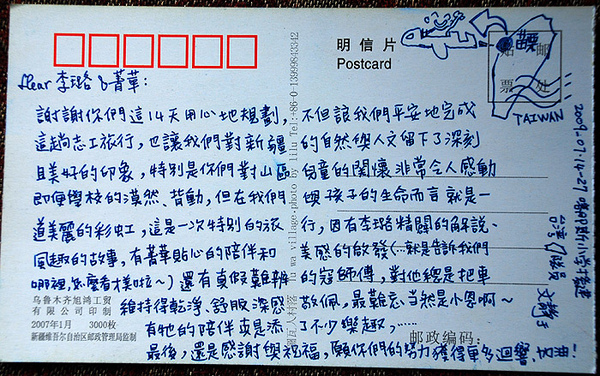 明信片
Postcard
贴 邮
票 处
TAIWAN
Dear 李璐 & 菁華:
謝謝你們這14天用心地規劃,不但讓我們平安地完成
這趟志工旅行,也讓我們對新疆的自然與人文留下了深刻
且美好的印象,特別是你們對山區兒童的關懷非常令人感動
即便學校的漠然、背動,但在我們 孩子的生命而言就是一
道美麗的彩虹,這是一次特別的旅行,因有李璐精闢的解說、
風趣的故事,有菁華貼心的陪伴和美感的啟發(…就是告訴我們
哪裡怎麼看才美啦~)還有真假難辨的寇師傅,對他總是把車
維持得乾淨、舒服深感敬佩,最難忘當然是小恩啊~
有牠的陪伴真是添了不少樂趣,……
最後,還是感謝與祝福,願你們的努力獲得更多迴響
2009.07.14-27
乌鲁木齐旭鸿工贸
有限公司印制
2007年1月 3000枚
新疆维吾尔自治区邮政管理局监制
village-photo by liLu Tel:+86-0-13999843342
邮政编码: